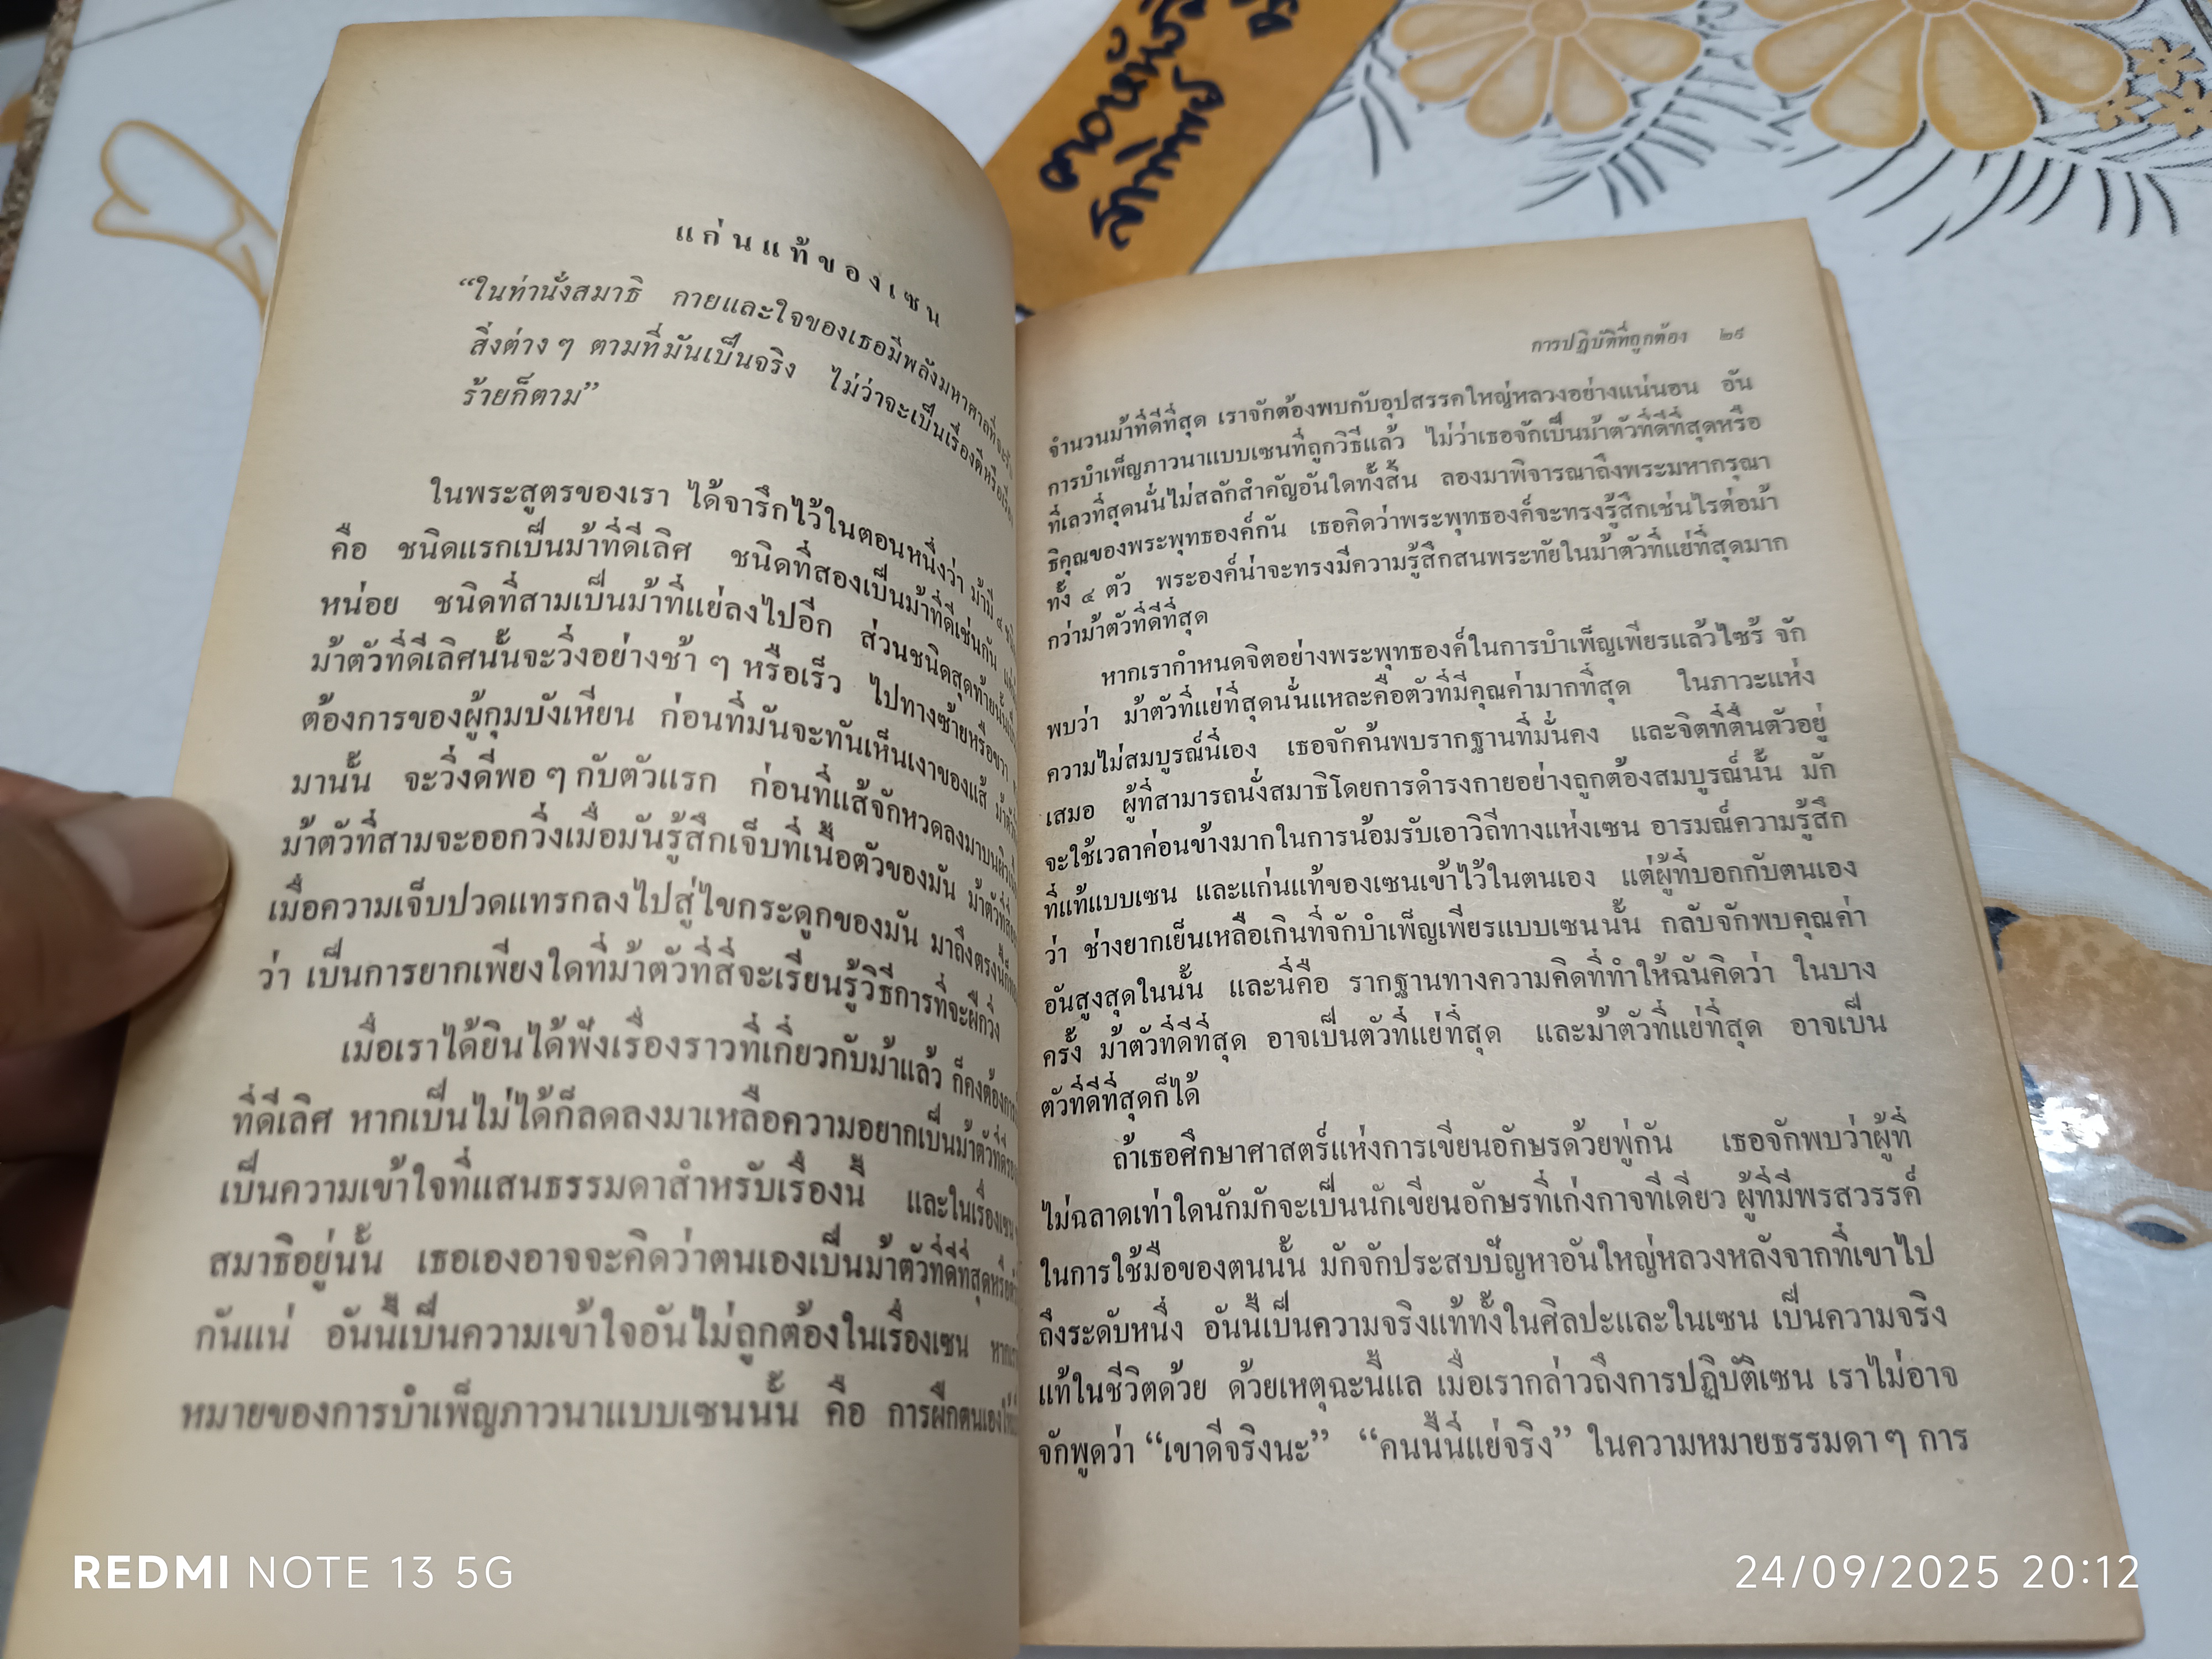 ดอหนัง
สาทิพย์
แก่นแท้ของเซน
“ในท่านั่งสมาธิ กายและใจของเธอมีพลังมหาศาลที่จะรับ
สิ่งต่าง ๆ ตามที่มันเป็นจริง ไม่ว่าจะเป็นเรื่องดีหรือเรื่อง
ร้ายก็ตาม”
ในพระสูตรของเรา ได้จารึกไว้ในตอนหนึ่งว่า ม้ามี ๔
คือ ชนิดแรกเป็นม้าที่ดีเลิศ ชนิดที่สองเป็นม้าที่ดีเช่นกัน
หน่อย ชนิดที่สามเป็นม้าที่แย่ลงไปอีก ส่วนชนิดสุดท้ายนั้น
ม้าตัวที่ดีเลิศนั้นจะวิ่งอย่างช้า ๆ หรือเร็ว ไปทางซ้ายหรือขวา
ต้องการของผู้กุมบังเหียน ก่อนที่มันจะทันเห็นเงาของแส้
มานั้น จะวิ่งดีพอ ๆ กับตัวแรก ก่อนที่แส้จักหวดลงมาบน
ม้าตัวที่สามจะออกวิ่งเมื่อมันรู้สึกเจ็บที่เนื้อตัวของมัน
เมื่อความเจ็บปวดแทรกลงไปสู่ไขกระดูกของมัน มาถึงตรงนี้
ว่า เป็นการยากเพียงใดที่ม้าตัวที่สี่จะเรียนรู้วิธีการที่จะฝึกวิ่ง
เมื่อเราได้ยินได้ฟังเรื่องราวที่เกี่ยวกับม้าแล้ว ก็คงต้องการ
ที่ดีเลิศ หากเป็นไม่ได้ก็ลดลงมาเหลือความอยากเป็นม้าตัวที่ดี
เป็นความเข้าใจที่แสนธรรมดาสำหรับเรื่องนี้ และในเรื่องเซน
สมาธิอยู่นั้น เธอเองอาจจะคิดว่าตนเองเป็นม้าตัวที่ดีที่สุดหรือ
กันแน่ อันนี้เป็นความเข้าใจอันไม่ถูกต้องในเรื่องเซน
หมายของการบำเพ็ญภาวนาแบบเซนนั้น คือ การฝึกตนเอง
การปฏิบัติที่ถูกต้อง ๒๙
จำนวนม้าที่ดีที่สุด เราจักต้องพบกับอุปสรรคใหญ่หลวงอย่างแน่นอน อัน
การบำเพ็ญภาวนาแบบเซนที่ถูกวิธีแล้ว ไม่ว่าเธอจักเป็นม้าตัวที่ดีที่สุดหรือ
ที่เลวที่สุดนั่นไม่สลักสำคัญอันใดทั้งสิ้น ลองมาพิจารณาถึงพระมหากรุณา
ธิคุณของพระพุทธองค์กัน เธอคิดว่าพระพุทธองค์จะทรงรู้สึกเช่นไรต่อม้า
ทั้ง ๔ ตัว พระองค์น่าจะทรงมีความรู้สึกสนพระทัยในม้าตัวที่แย่ที่สุดมาก
กว่าม้าตัวที่ดีที่สุด
หากเรากำหนดจิตอย่างพระพุทธองค์ในการบำเพ็ญเพียรแล้วไซร้ จัก
พบว่า ม้าตัวที่แย่ที่สุดนั่นแหละคือตัวที่มีคุณค่ามากที่สุด ในภาวะแห่ง
ความไม่สมบูรณ์นี่เอง เธอจักค้นพบรากฐานที่มั่นคง และจิตที่ตื่นตัวอยู่
เสมอ ผู้ที่สามารถนั่งสมาธิโดยการดำรงกายอย่างถูกต้องสมบูรณ์นั้น มัก
จะใช้เวลาค่อนข้างมากในการน้อมรับเอาวิถีทางแห่งเซน อารมณ์ความรู้สึก
ที่แท้แบบเซน และแก่นแท้ของเซนเข้าไว้ในตนเอง แต่ผู้ที่บอกกับตนเอง
ว่า ช่างยากเย็นเหลือเกินที่จักบำเพ็ญเพียรแบบเซนนั้น กลับจักพบคุณค่า
อันสูงสุดในนั้น และนี่คือ รากฐานทางความคิดที่ทำให้ฉันคิดว่า ในบาง
ครั้ง ม้าตัวที่ดีที่สุด อาจเป็นตัวที่แย่ที่สุด และม้าตัวที่แย่ที่สุด อาจเป็น
ตัวที่ดีที่สุดก็ได้
ถ้าเธอศึกษาศาสตร์แห่งการเขียนอักษรด้วยพู่กัน เธอจักพบว่าผู้ที่
ไม่ฉลาดเท่าใดนักมักจะเป็นนักเขียนอักษรที่เก่งกาจทีเดียว ผู้ที่มีพรสวรรค์
ในการใช้มือของตนนั้น มักจักประสบปัญหาอันใหญ่หลวงหลังจากที่เขาไป
ถึงระดับหนึ่ง อันนี้เป็นความจริงแท้ทั้งในศิลปะและในเซน เป็นความจริง
แท้ในชีวิตด้วย ด้วยเหตุฉะนี้แล เมื่อเรากล่าวถึงการปฏิบัติเซน เราไม่อาจ
จักพูดว่า “เขาดีจริงนะ” “คนนี้นี่แย่จริง” ในความหมายธรรมดา ๆ การ
REDMI NOTE 13 5G
24/09/2025 20:12